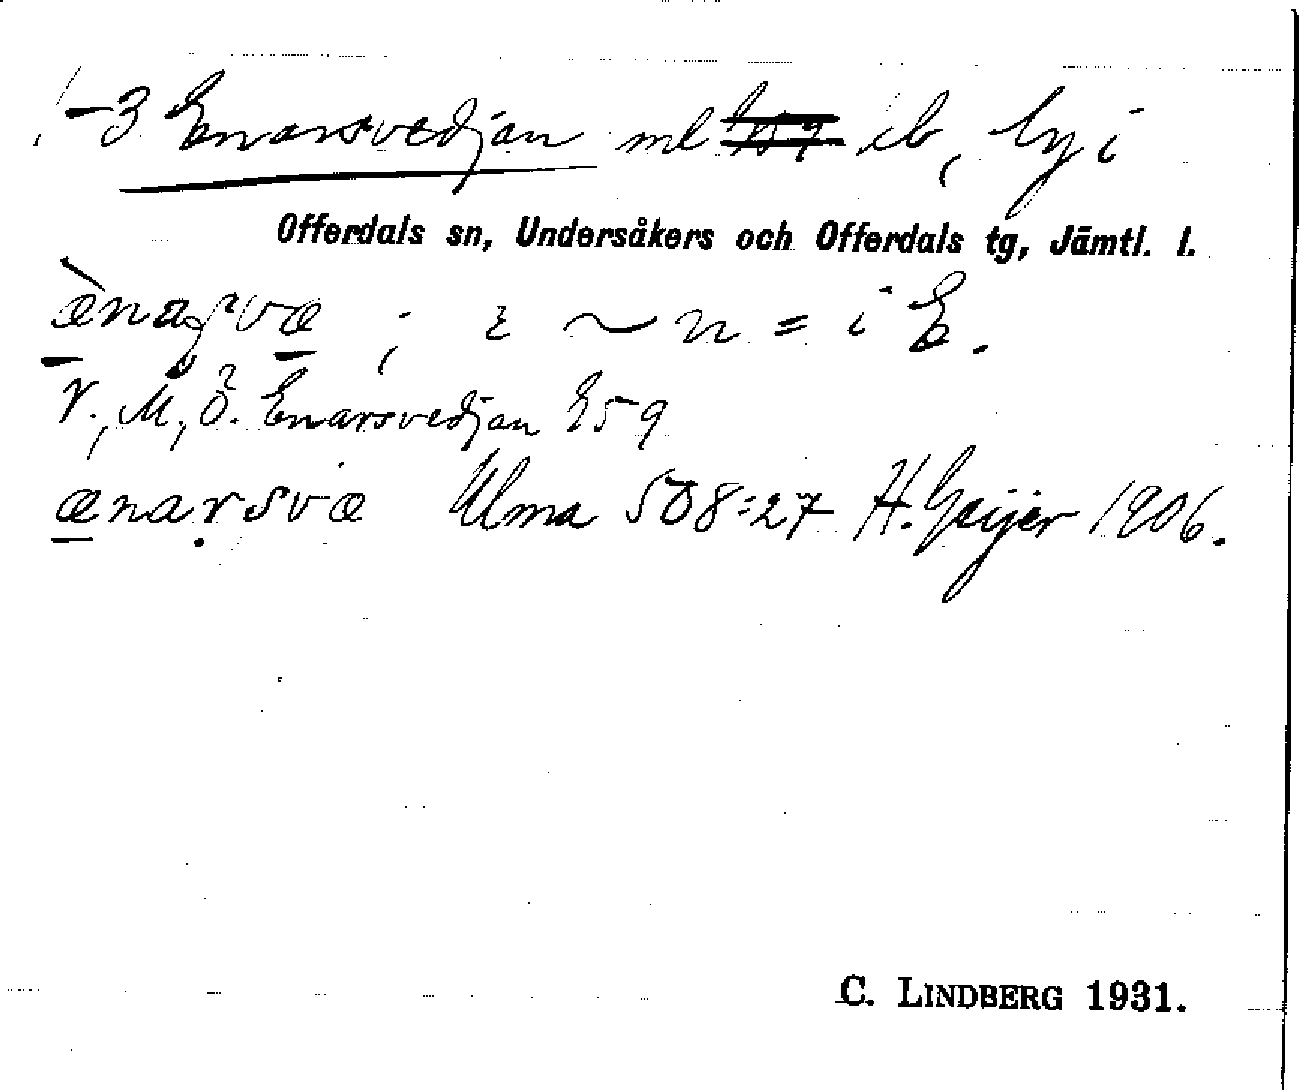 1-3 Enarsvedjan ml ib, by i
Offerdals sn, Undersåkers och Offerdals tg, Jämtl. l.
V., M., Ö. Enarsvedjan E59
ænarsvæ Ulma 508:27 H. Geijer 1906.
C. LINDBERG 1931.